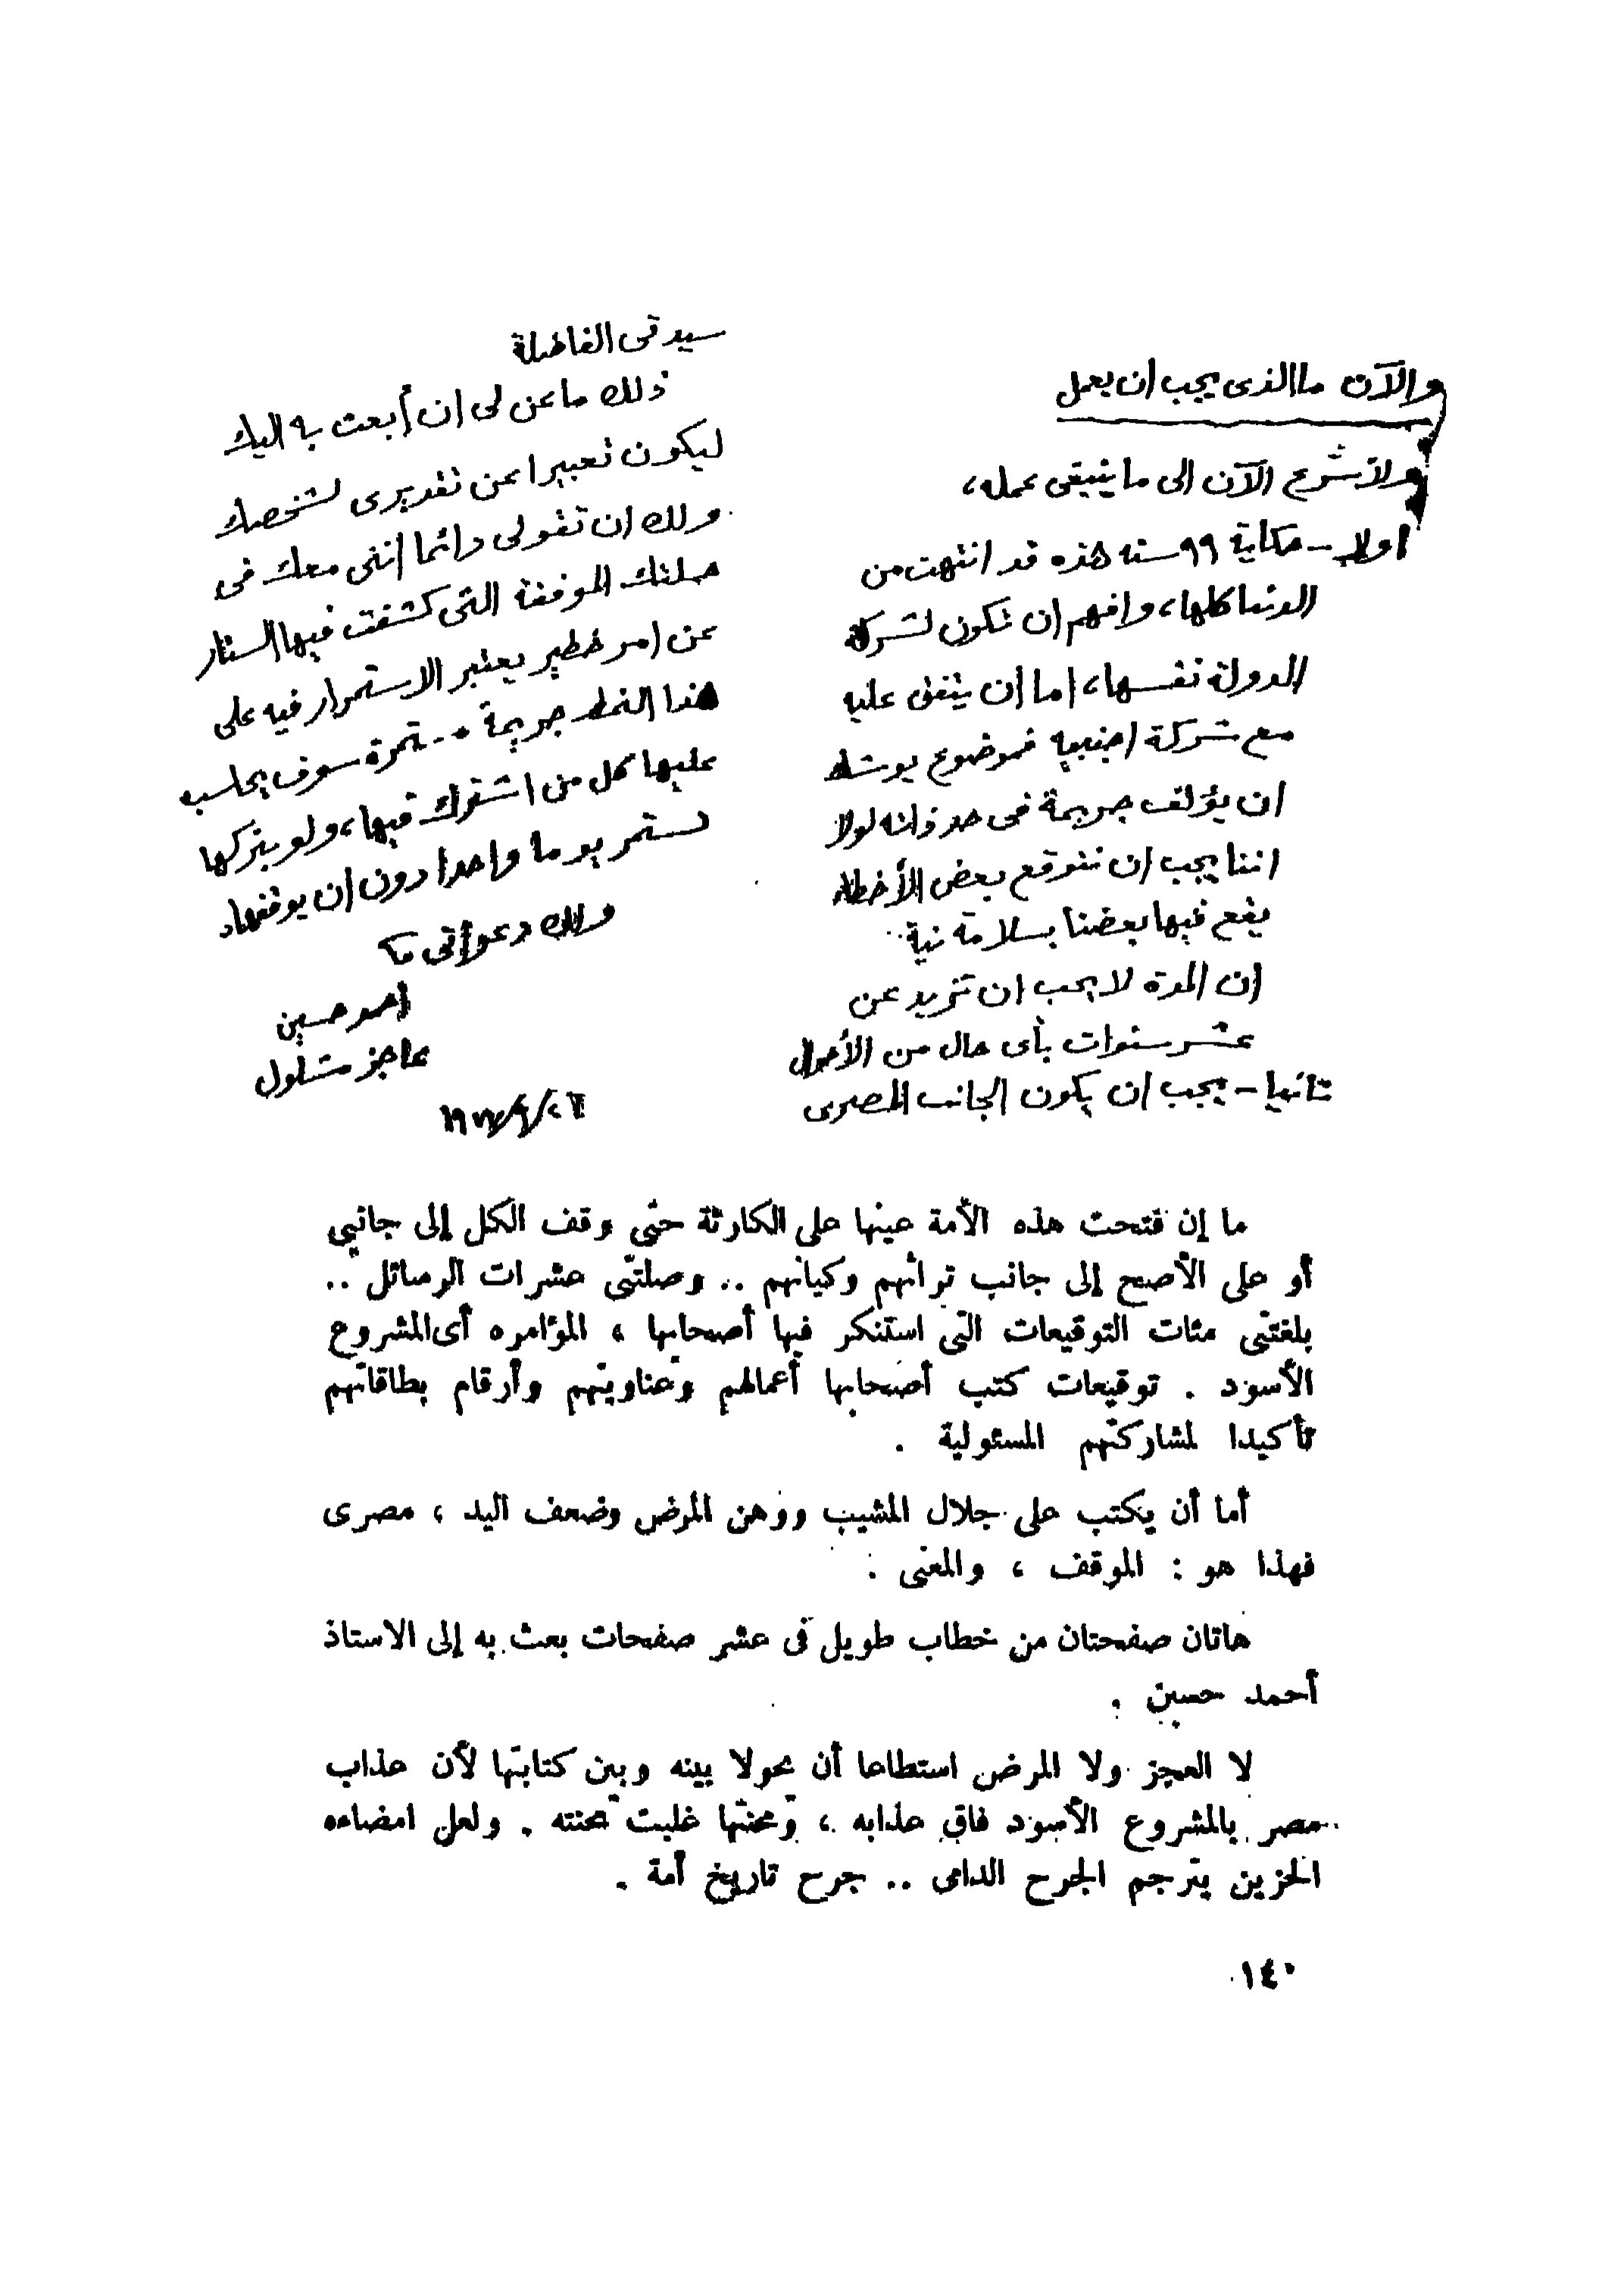 والآن ما الذى يجب ان يعمل
ولأشرع الآن الى ما ينبغى عمله،
اولا – حكاية ٩٩ سنه هذه قد انتهت من
الدنيا كلها، وافهم ان تكون لشركة
الدولة نفسها، اما أن يتفق عليه
مع شركة اجنبيه فموضوع يوشك
ان يؤلف جريمة فى حد ذاته لولا
اننا يجب ان نتوقع بعض الأخطاء
يقع فيها بعضنا بسلامة نية..
ان المدة لا يجب ان تزيد عن
عشر سنوات بأى حال من الأحوال
ثانيا – يجب ان يكون الجانب المصرى
سيدتى الفاضلة
ذلك ما عن لى ان أبعث به اليك
ليكون تعبيرا عن تقديرى لشخصك
ولك ان تقولى دائما اننى معك فى
حملتك الموفقة التى كشفت فيها الستار
عن امر خطير يعتبر الاستمرار فيه على
هذا النمط جريمة .. سوف يحاسب
عليها كل من اشترك فيها، ولو بتركها
تستمر يوما واحدا دون ان يوقفها
ولك دعواتى
احمد حسين
عاجز مشلول
ما إن فتحت هذه الأمة عينها على الكارثة حتى وقف الكل إلى جانبى
أو على الأصح إلى جانب تراثهم وكيانهم .. وصلتنى عشرات الرسائل ..
بلغتنى مئات التوقيعات التى استنكر فيها أصحابها ، المؤامره أى المشروع
الأسود . توقيعات كتب أصحابها أعمالهم وعناوينهم وأرقام بطاقاتهم
تأكيدا لمشاركتهم المسئولية .
أما أن يكتب على جلال المشيب ووهن المرض وضعف اليد ، مصرى
فهذا هو : الموقف ، والمعنى .
هاتان صفحتان من خطاب طويل فى عشر صفحات بعث به إلى الاستاذ
أحمد حسين .
لا العجز ولا المرض استطاعا أن يحولا بينه وبين كتابتها لأن عذاب
مصر بالمشروع الأسود فاق عذابه ، ومحنتها غلبت محنته . ولعل امضاءه
الحزين يترجم الجرح الدامى .. جرح تاريخ أمة .
١٤٠